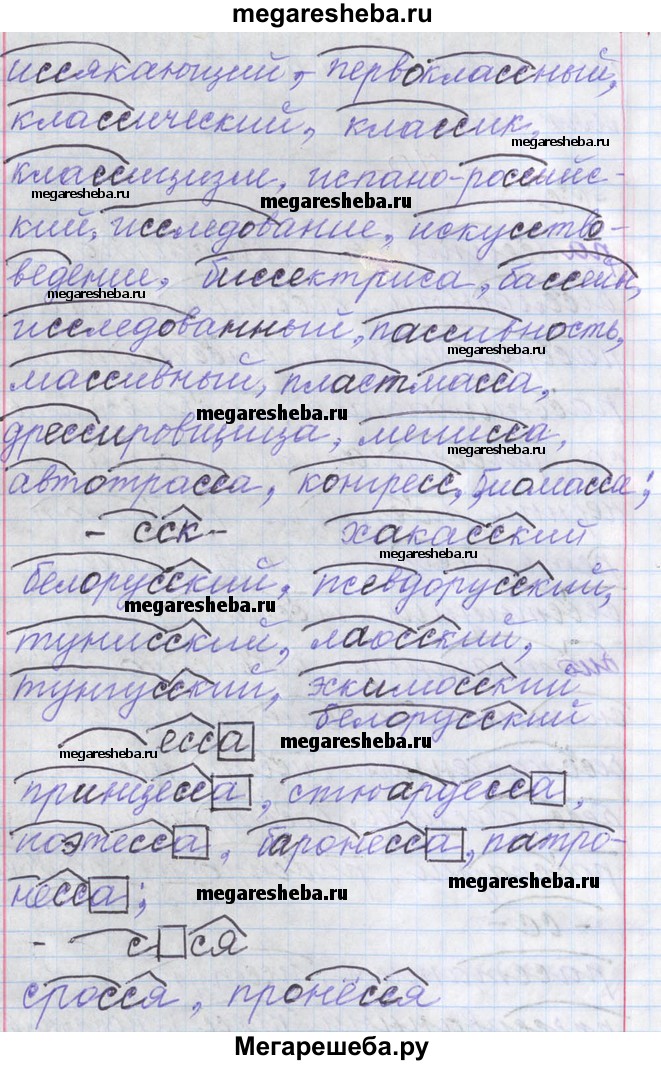 megaresheba.ru
иссякающий, первоклассный,
классический, классик,
классицизм, испано-российс-
megaresheba.ru
megaresheba.ru
кий, исследование, искусство-
ведение, биссектриса, бассейн,
megaresheba.ru
исследованный, пассивность,
megaresheba.ru
массивный, пластмасса,
megaresheba.ru
дрессировщица, мелисса,
автотрасса, конгресс, биомасса;
- сск- хакасский
megaresheba.ru
белорусский, псевдорусский,
megaresheba.ru
тунисский, лаосский,
тунгусский, эскимосский
белорусский
есса
megaresheba.ru
megaresheba.ru
принцесса, стюардесса,
поэтесса, баронесса, патро-
несса;
megaresheba.ru
megaresheba.ru
- с ся
сросся, пронёсся
Мегарешеба.ру